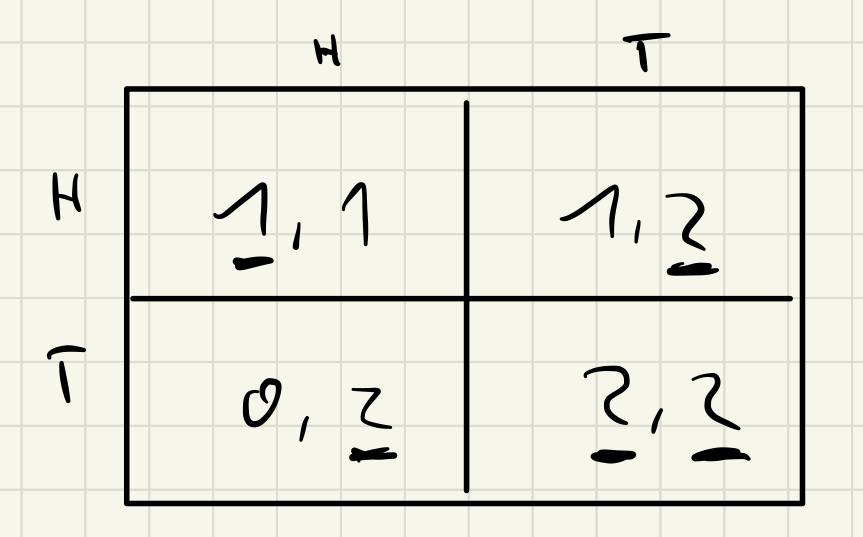 H T
H 1, 1 1, 2
T 0, 2 2, 2